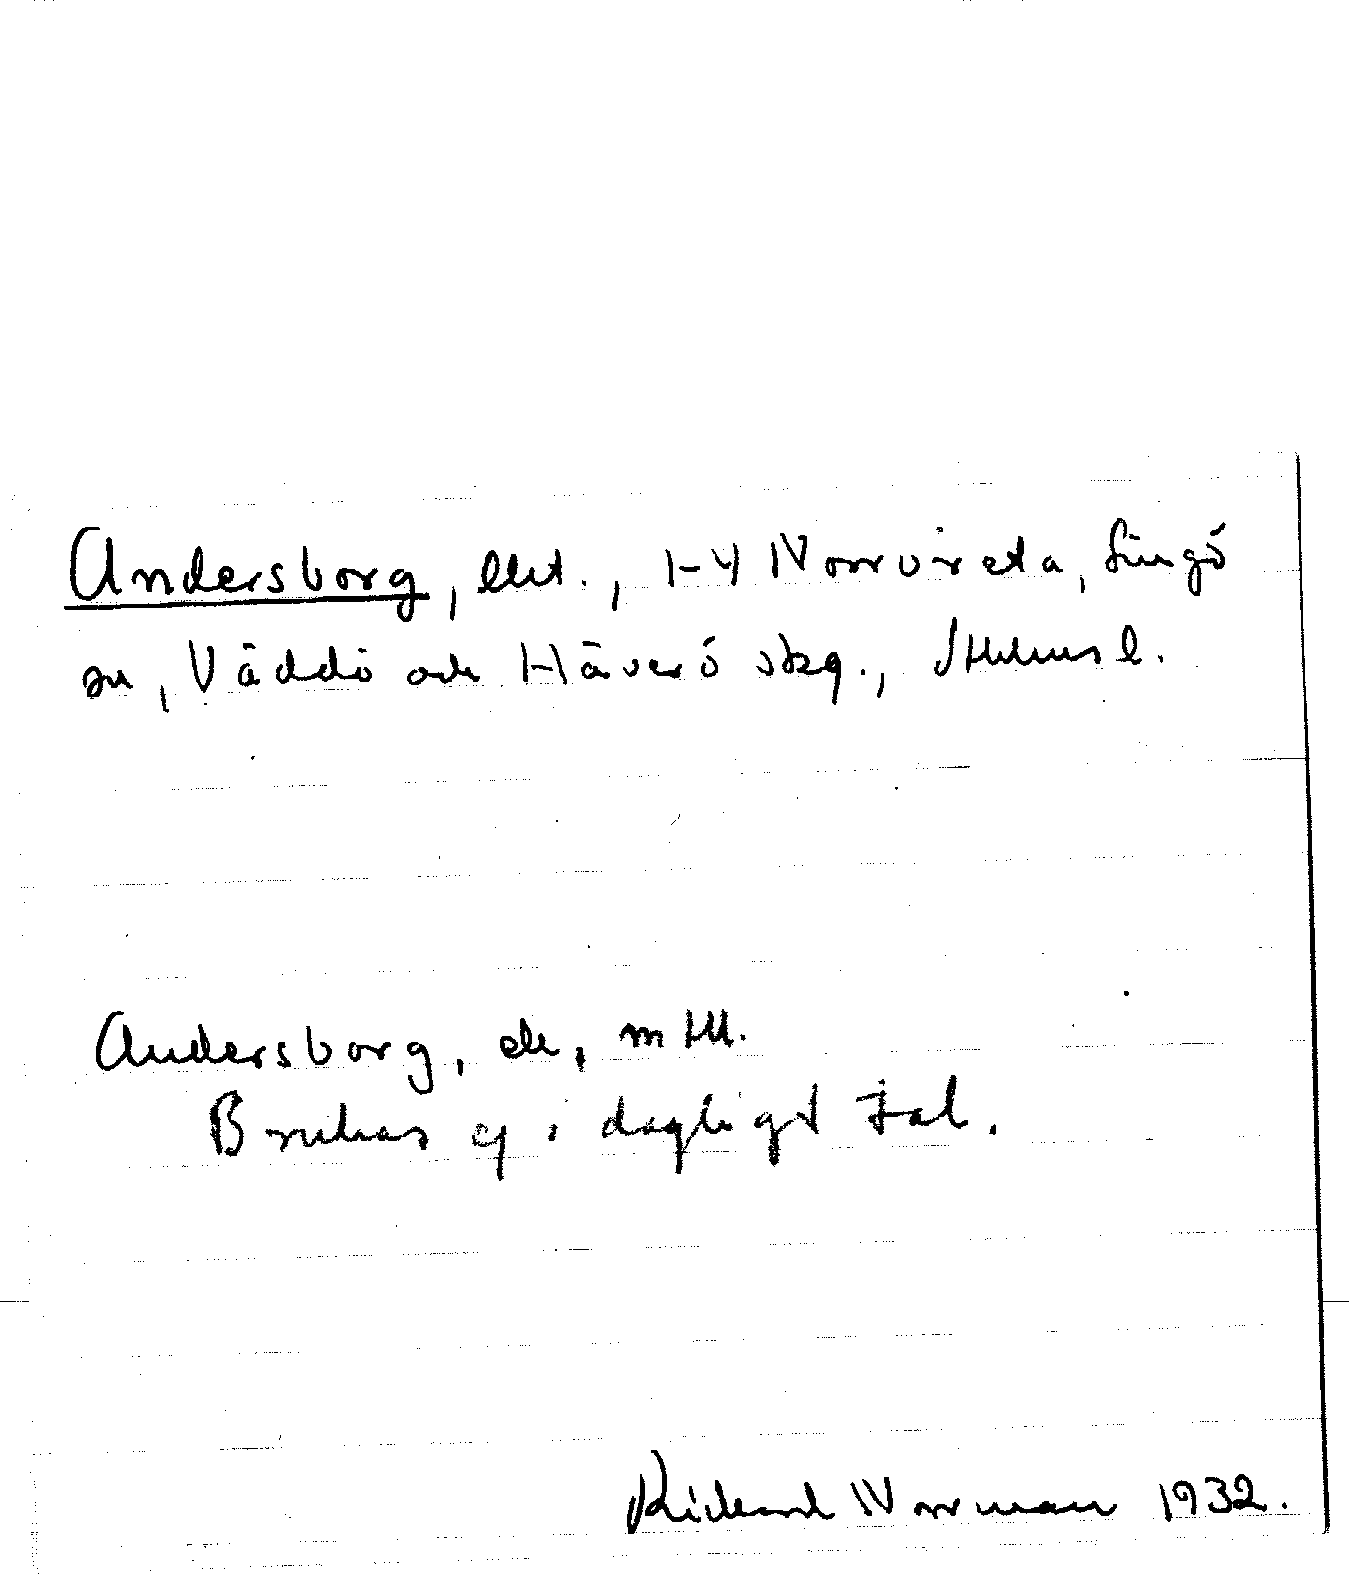 Andersborg, lht., 1-4 Norrvreta, Singö
sn, Väddö och Häverö skg., Sthlms l.
Andersborg, de, mtll.
Brukas ej i dagligt tal.
Rickard Norrman 1932.